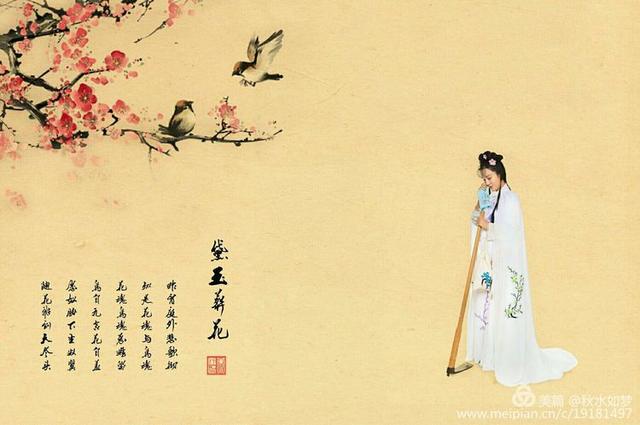 黛玉葬花
昨宵庭外悲歌发
知是花魂与鸟魂
花魂鸟魂总难留
鸟自无言花自羞
愿奴胁下生双翼
随花飞到天尽头
美篇 @秋水如梦
www.meipian.cn/c/19181497